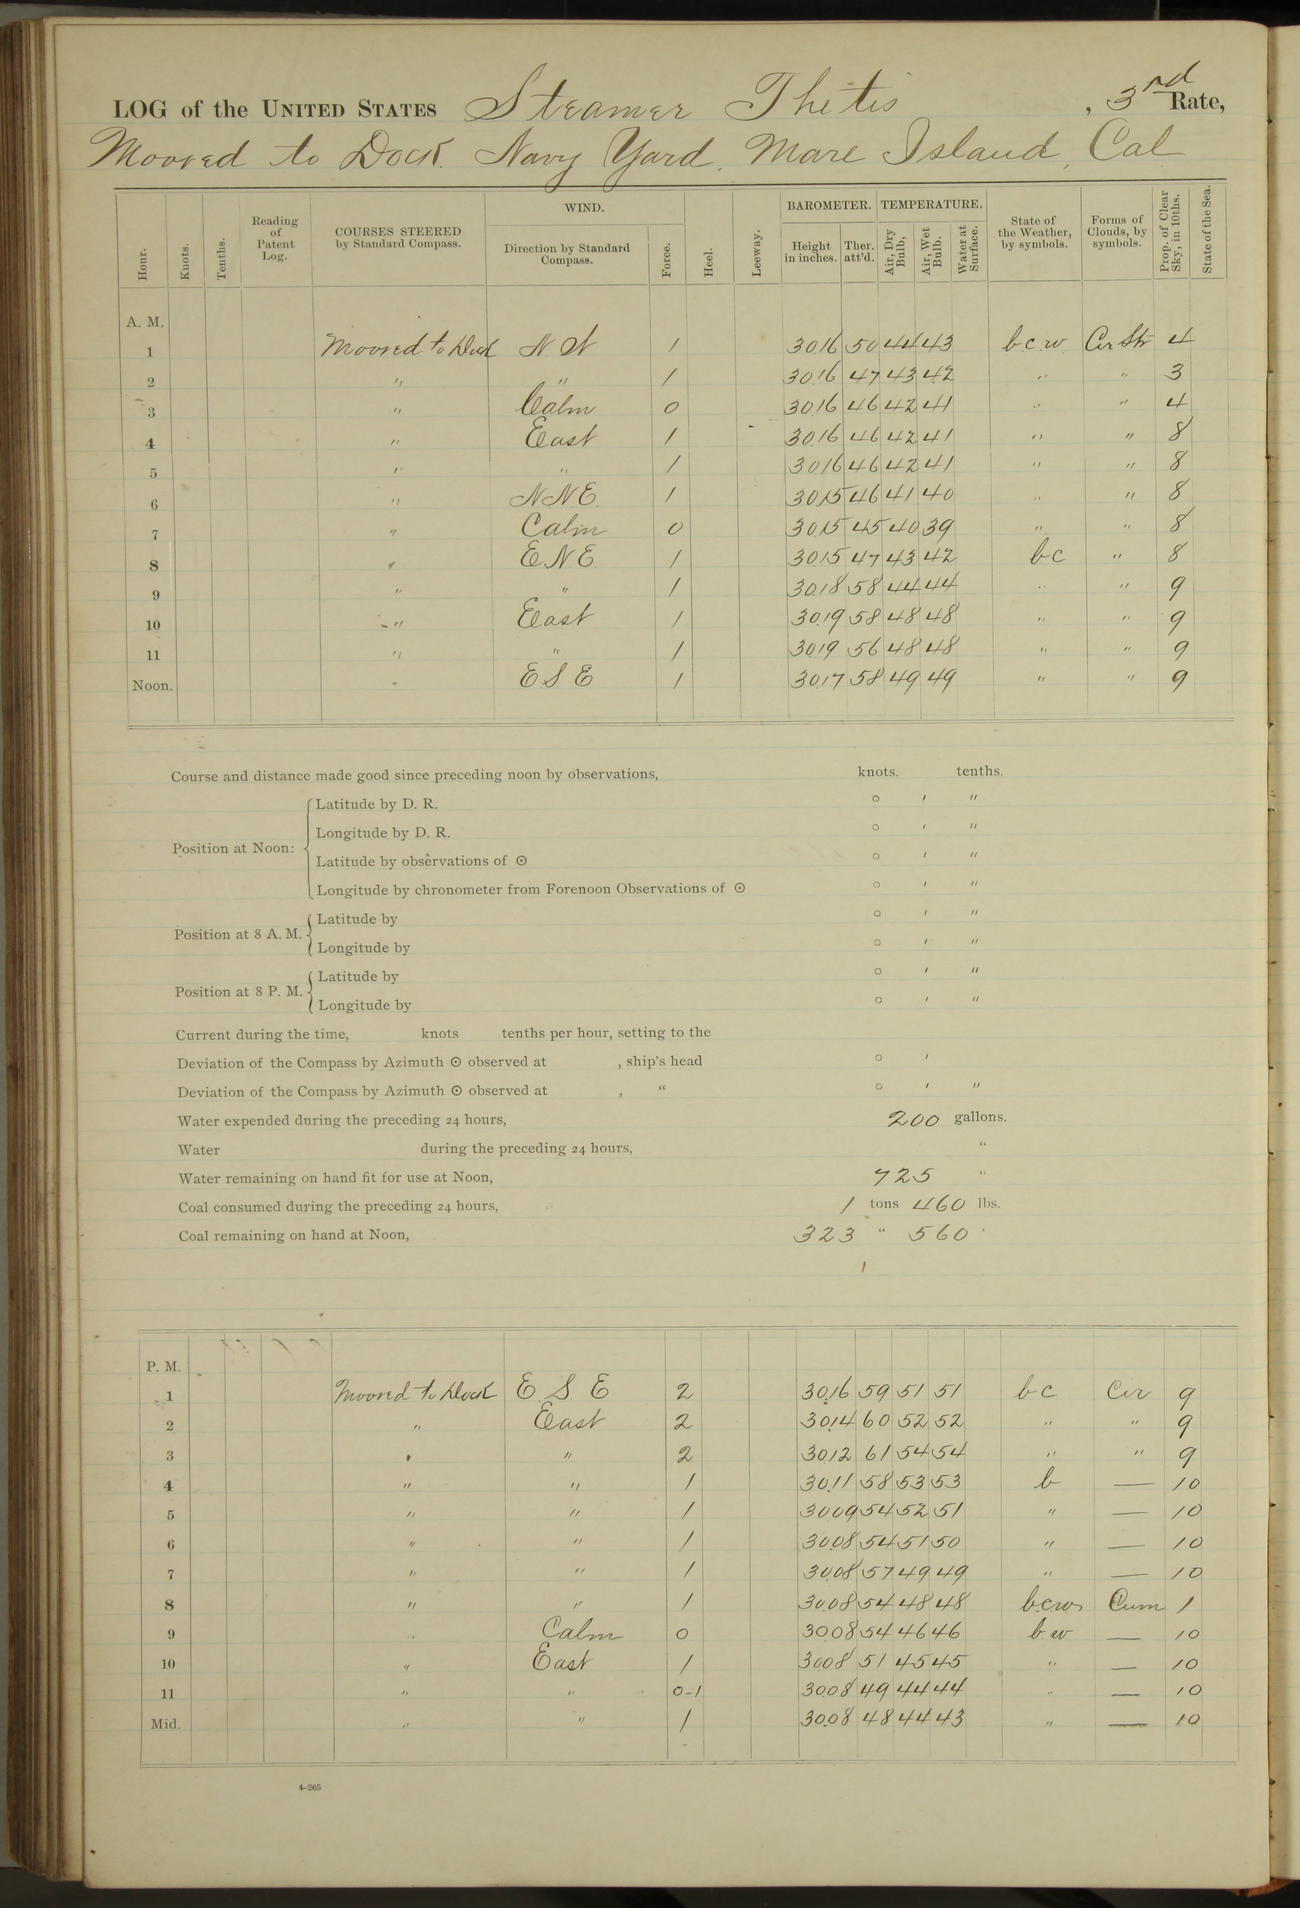 LOG of the UNITED STATES Steamer Thetis , 3rd Rate,
Moored to Dock. Navy Yard. Mare Island, Cal
Hour. Knots. Tenths. Reading of Patent Log. COURSES STEERED by Standard Compass. WIND. Direction by Standard Compass. Force. Heel. Leeway. BAROMETER. Height in inches. Ther. att'd. TEMPERATURE. Air, Dry Bulb, Air, Wet Bulb. Water at Surface. State of the Weather, by symbols. Forms of Clouds, by symbols. Prop. of Clear Sky, in 10ths. State of the Sea.
A. M.
1 Moored to Dock N W 1 30.16 50 44 43 b.c.w. Cir Str 4
2 " " 1 30.16 47 43 42 " " 3
3 " Calm 0 30.16 46 42 41 " " 4
4 " East 1 30.16 46 42 41 " " 8
5 " " 1 30.16 46 42 41 " " 8
6 " NNE 1 30.15 46 41 40 " " 8
7 " Calm 0 30.15 45 40 39 " " 8
8 " ENE 1 30.15 47 43 42 bc " 8
9 " " 1 30.18 58 44 44 " " 9
10 " East 1 30.19 58 48 48 " " 9
11 " " 1 30.19 56 48 48 " " 9
Noon. " ESE 1 30.17 58 49 49 " " 9
Course and distance made good since preceding noon by observations, knots. tenths.
Position at Noon: Latitude by D. R. ° ′ ″
Longitude by D. R. ° ′ ″
Latitude by observations of ☉ ° ′ ″
Longitude by chronometer from Forenoon Observations of ☉ ° ′ ″
Position at 8 A. M. Latitude by ° ′ ″
Longitude by ° ′ ″
Position at 8 P. M. Latitude by ° ′ ″
Longitude by ° ′ ″
Current during the time, knots tenths per hour, setting to the
Deviation of the Compass by Azimuth ☉ observed at , ship's head ° ′
Deviation of the Compass by Azimuth ☉ observed at , " ° ′ ″
Water expended during the preceding 24 hours, 200 gallons.
Water during the preceding 24 hours, "
Water remaining on hand fit for use at Noon, 725 "
Coal consumed during the preceding 24 hours, 1 tons 460 lbs.
Coal remaining on hand at Noon, 323 " 560 "
P. M.
1 Moored to Dock E S E 2 30.16 59 51 51 bc Cir 9
2 " East 2 30.14 60 52 52 " " 9
3 " " 2 30.12 61 54 54 " " 9
4 " " 1 30.11 58 53 53 b — 10
5 " " 1 30.09 54 52 51 " — 10
6 " " 1 30.08 54 51 50 " — 10
7 " " 1 30.08 57 49 49 " — 10
8 " " 1 30.08 54 48 48 b.c.w. Cum 1
9 " Calm 0 30.08 54 46 46 b.w — 10
10 " East 1 30.08 51 45 45 " — 10
11 " " 0-1 30.08 49 44 44 " — 10
Mid. " " 1 30.08 48 44 43 " — 10
4-265